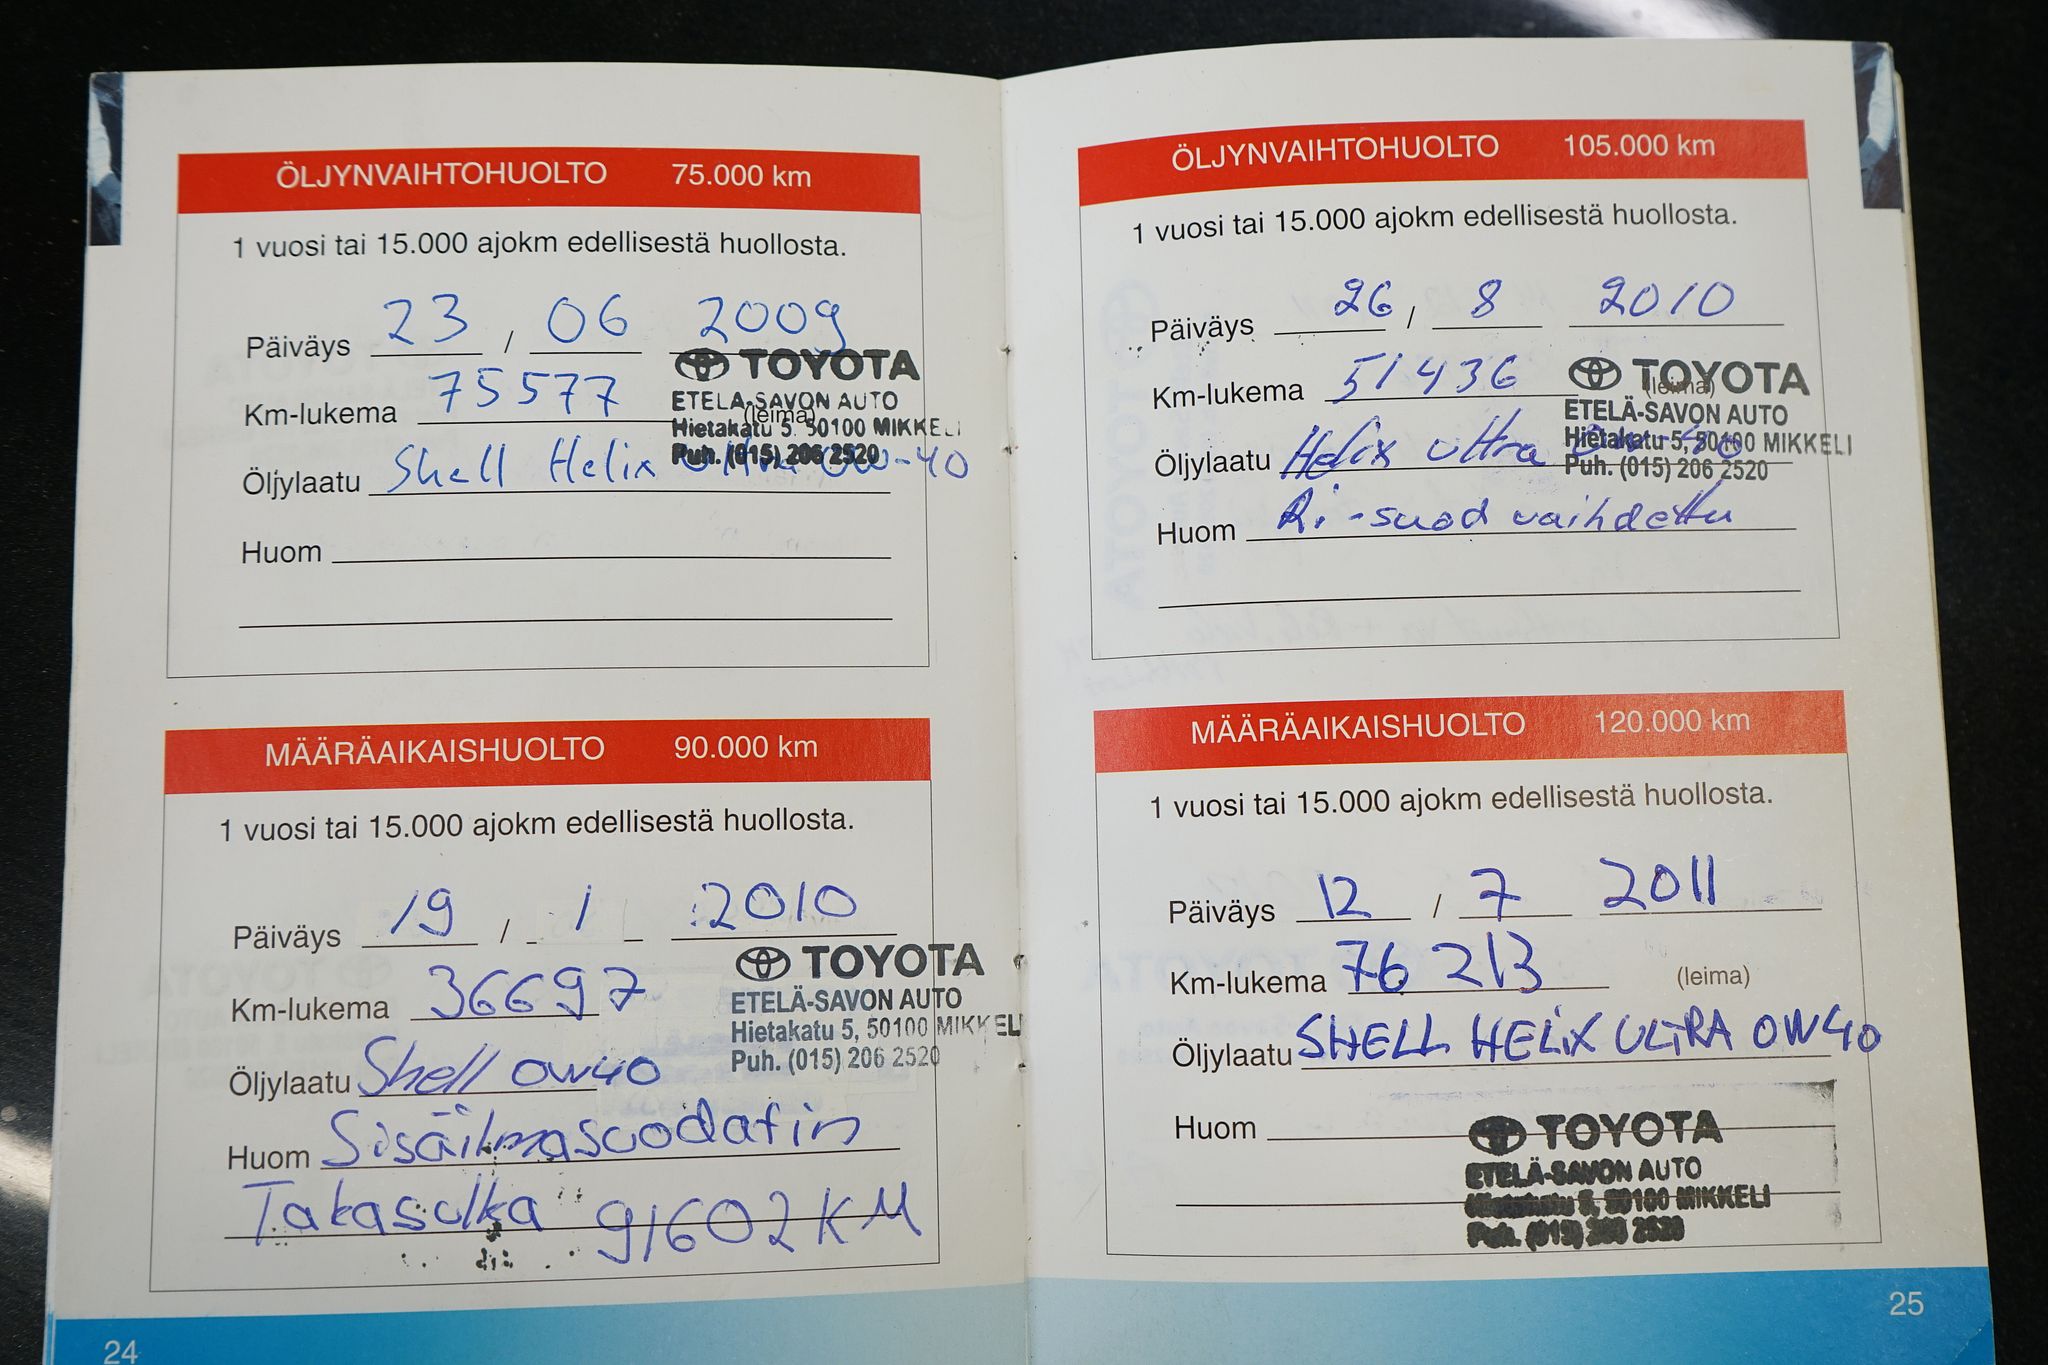 ÖLJYNVAIHTOHUOLTO 75.000 km
1 vuosi tai 15.000 ajokm edellisestä huollosta.
Päiväys 23 / 06 2009
TOYOTA
Km-lukema 75577 (leima)
ETELÄ-SAVON AUTO
Hietakatu 5, 50100 MIKKELI
Puh. (015) 206 2520
Öljylaatu Shell Helix Ultra 0W-40
Huom
MÄÄRÄAIKAISHUOLTO 90.000 km
1 vuosi tai 15.000 ajokm edellisestä huollosta.
Päiväys 19 / 1 2010
TOYOTA
Km-lukema 36697
ETELÄ-SAVON AUTO
Hietakatu 5, 50100 MIKKELI
Puh. (015) 206 2520
Öljylaatu Shell 0W40
Huom Sisäilmasuodatin
Takasulka 91602 KM
24
ÖLJYNVAIHTOHUOLTO 105.000 km
1 vuosi tai 15.000 ajokm edellisestä huollosta.
Päiväys 26 / 8 2010
Km-lukema 51436 (leima)
TOYOTA
ETELÄ-SAVON AUTO
Hietakatu 5, 50100 MIKKELI
Puh. (015) 206 2520
Öljylaatu Helix Ultra 0w-40
Huom Ri-suod vaihdettu
MÄÄRÄAIKAISHUOLTO 120.000 km
1 vuosi tai 15.000 ajokm edellisestä huollosta.
Päiväys 12 / 7 2011
Km-lukema 76 213 (leima)
Öljylaatu SHELL HELiX ULTRA 0W40
Huom
TOYOTA
ETELÄ-SAVON AUTO
Hietakatu 5, 50100 MIKKELI
Puh. (015) 206 2520
25